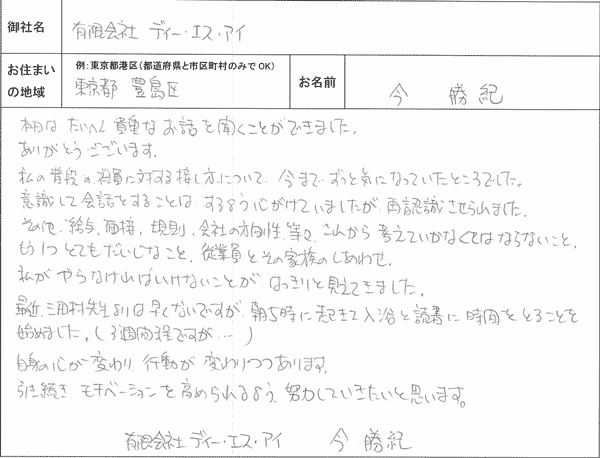 御社名 有限会社 ディー・エス・アイ
お住まいの地域 例：東京都港区（都道府県と市区町村のみでOK） 東京都 豊島区 お名前 今 勝紀
本日は たいへん 貴重な お話を聞くことができました。
ありがとうございます。
私の普段の役員に対する接し方について、今まで ずっと気になっていたところでした。
意識して会話をすることは するよう心がけていましたが、再認識させられました。
その他、給与、面接、規則、会社の方向性 等々、これから 考えていかなくてはならないこと。
もう1つ とてもだいじなこと、従業員とその家族のしあわせ。
私が やらなければいけないことが はっきりと見えてきました。
最近、三田村先生よりは早くないですが、朝5時に起きて入浴と読書に時間をとることを
始めました。（3週間程ですが…）
自身の心が変わり、行動が 変わりつつあります。
引き続き、モチベーションを高められるよう、努力していきたいと思います。
有限会社 ディー・エス・アイ 今 勝紀